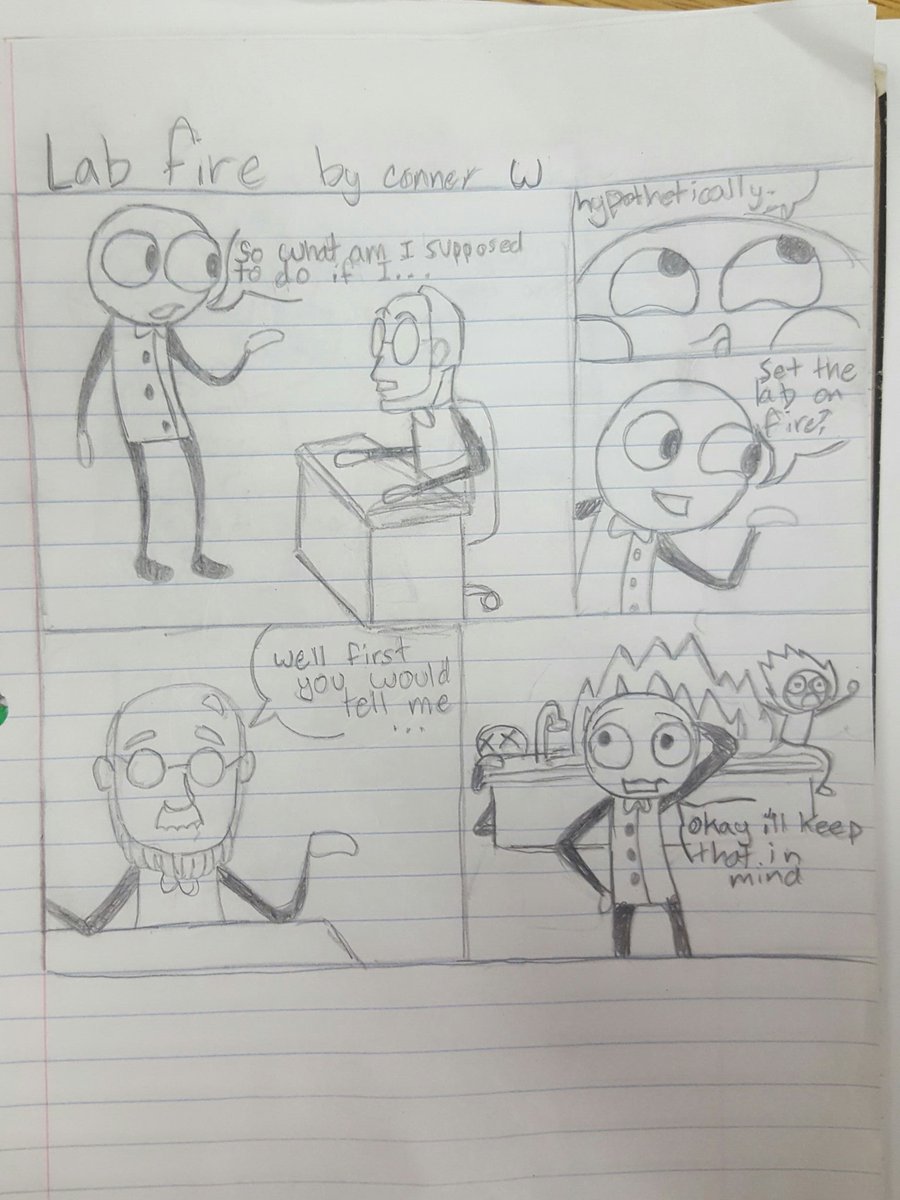 Lab fire by conner W
So what am I supposed
to do if I...
hypothetically..
set the
lab on
fire?
well first
you would
tell me
...
okay i'll keep
that in
mind